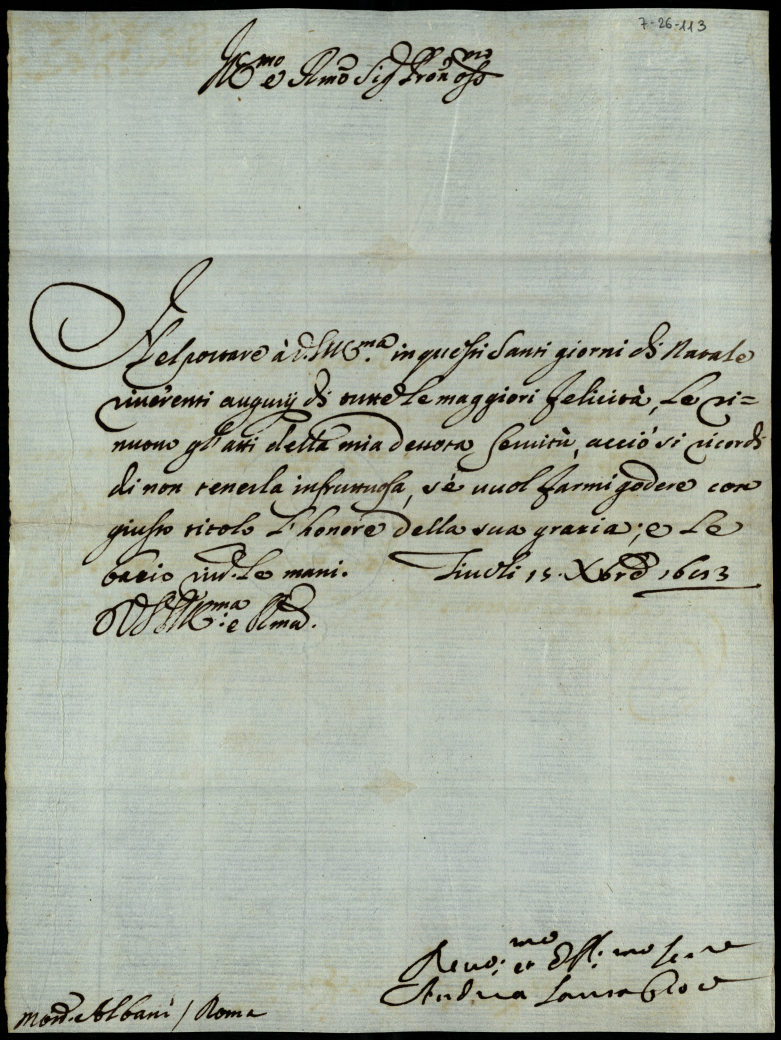 7-26-113
Ill.mo e Rmo Sig Pron Oss.mo
Nel portare à V.S. Ill.ma in questi Santi giorni di Natale
riverenti augurij di tutte le maggiori felicità, le ri=
nuovo gl'atti della mia devota servitù, acciò si ricordi
di non tenerla infruttuosa, se vuol farmi godere con
giusto titolo l'honore della sua grazia; e le
bacio river.te le mani. Tivoli 15. Xbre
D V.S. Ill.ma e Rma.
Devo:mo et Obl:mo Serre
Andrea
Mons. Albani / Roma